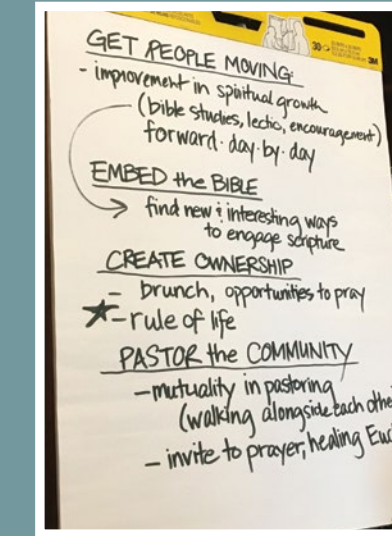 30
3M
GET PEOPLE MOVING:
- improvement in spiritual growth
(bible studies, lectio, encouragement)
forward·day·by·day
EMBED the BIBLE
find new & interesting ways
to engage scripture
CREATE OWNERSHIP
- brunch, opportunities to pray
★- rule of life
PASTOR the COMMUNITY
- mutuality in pastoring
(walking alongside each othe
- invite to prayer, healing Euc